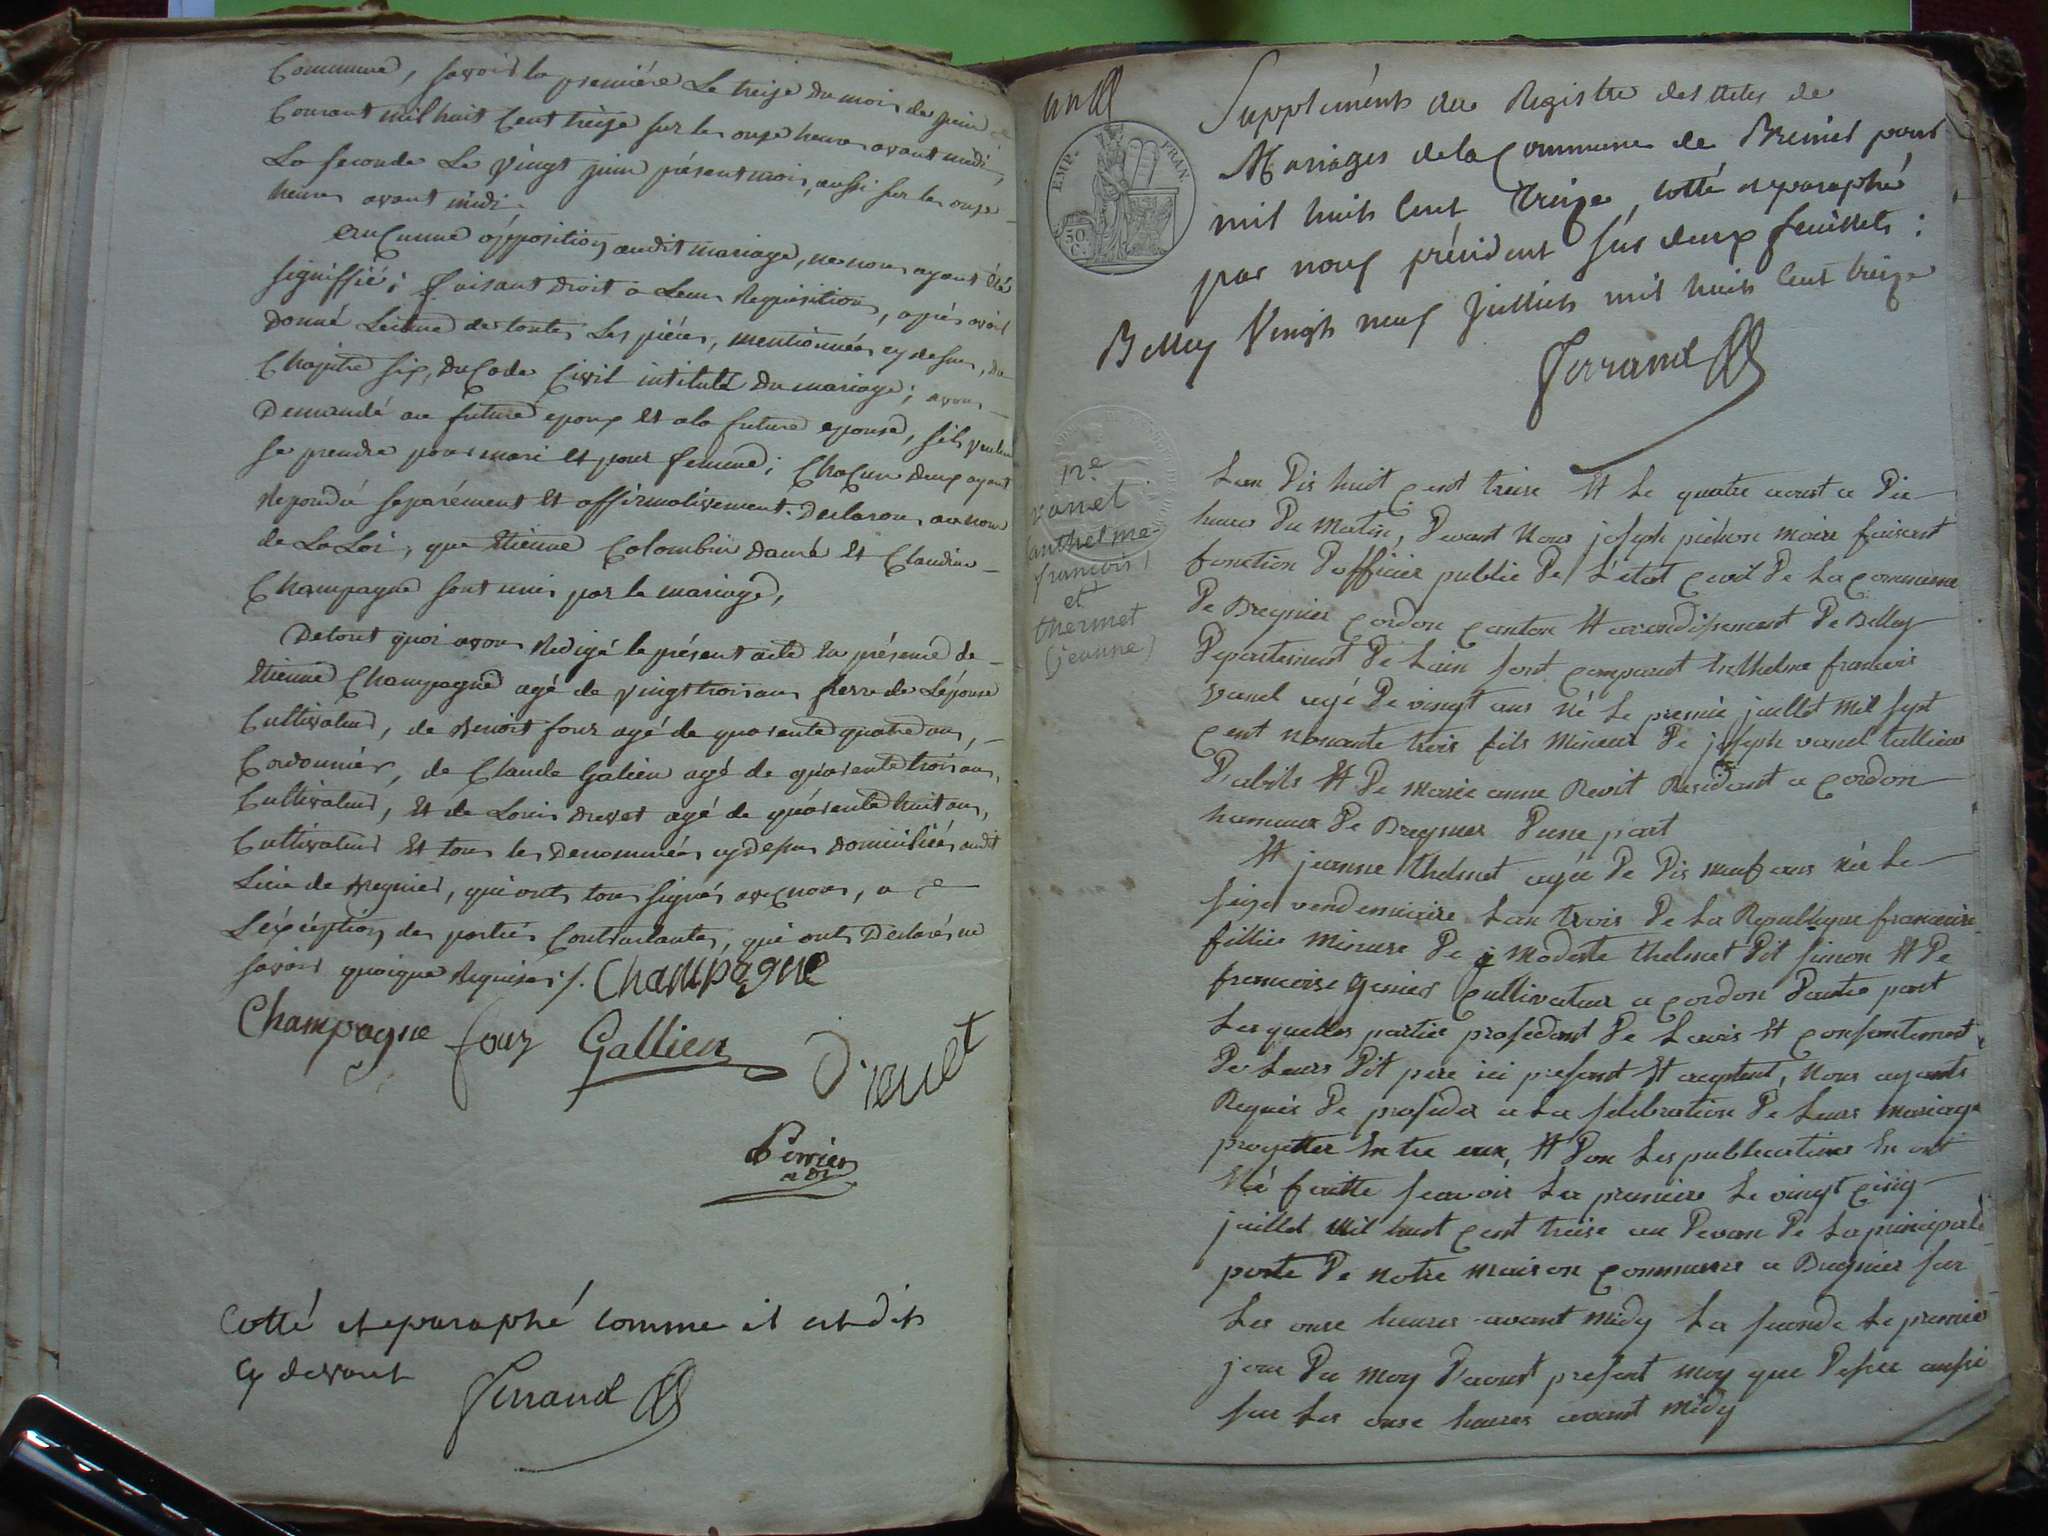 Commune, savoir la premiére Le treize du mois de juin
Courant mil huit Cent treize sur les onze heures avant midi,
La seconde Le vingt juin présent mois, aussi sur les onze
heures avant midi.
aucunne opposition audit mariage, ne nous ayant été
signiffié; faisant droit a Leur Requisition, après avoir
donné Lecture de toutes Les piéces, mentionnées cy dessus, du
Chapitre six, du Code Civil intitulé Du mariage; avons
Demandé au future epoux et a la future epouse, s'ils veulent
se prendre pour mari et pour femme; Chacun deux ayant
repondu separément et affirmativement. Declarons au nom
de La Loi, que Etienne Colombin et Claudine
Champagne sont unis par le mariage,
Detout quoi avons Redigé le présent acte en présence de
Etienne Champagne agé de vingt trois ans frere de L'épouse
Cultivateur, de Benoit four agé de quarente quatre ans,
Cordonnier, de Claude Galien agé de quarente trois ans,
Cultivateur, et de Louis Drevet agé de quarente huit ans,
Cultivateur et tous les Denommés cy dessus domiciliés audit
Lieu de Bregnier, qui onts tous signés avec nous, a
L'éxçéption des parties Contractantes, qui onts Declarés ne
savoir quoique Requises ./. Champagne
Champagne four Gallien Drevet
Perrier
adt
Cotté et paraphé comme il est dit
cy devant
Ferrand
un
EMP. FRAN.
50 C.
Suppléments au Registre des actes de
Mariages de la Commune de Brenier pour
mil huit Cent Treize, cotté et paraphé
par nous président sus deux feuillets:
Belley Vingt neuf Juillet mil huit Cent treize
Ferrand
nº
vanel
(anthelme
françois)
et
thermet
(jeanne)
Lan Dis huit Cent treise et Le quatre aoust a Dix
heures Du matin, Devant Nous joseph pichon maire faisant
fonction D'officier publie De L'etat Civil De La Commune
De Bregnier Cordon Canton et arondissement De Belley
Departement De Lain sont Comparut Anthelme francois
vanel agé De vingt ans Né Le premie juillet mil sept
Cent nonante trois fils Mineur De joseph vanel tallieur
D'abits et De marie anne Revit Residant a Cordon
hameaux De Bregnier D'une part
Et jeanne thelmet agée De Dis neuf ans Née Le
seize vendemiaire Lan trois De La Republique francaise
fillie Mineure De Modeste thelmet Dit simon et De
francoise genier Cultivateur a Cordon D'autre part
Lesquelles partie profedant De Lavis et Consentement
De Leurs Dit pere ici present et aceptent, Nous ayants
Requis De profeder a La selebration De Leurs mariage
proyetter Entre eux, et Don Les publications En ont
Eté faitte scavoir La premiere Le vingt Cinq
juillet mil huit Cent treise au Devan De La principale
porte De Notre maison Commune a Bregnier sur
Les onse heures avant midy La seconde Le premier
jour Du moy D'aoust present moy que Desus aussi
sur Les onse heures avant midy